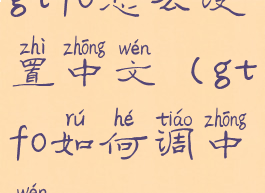 zhì zhōng wén
置中文（gt
rú hé tiáo zhōng
fo如何调中
wén